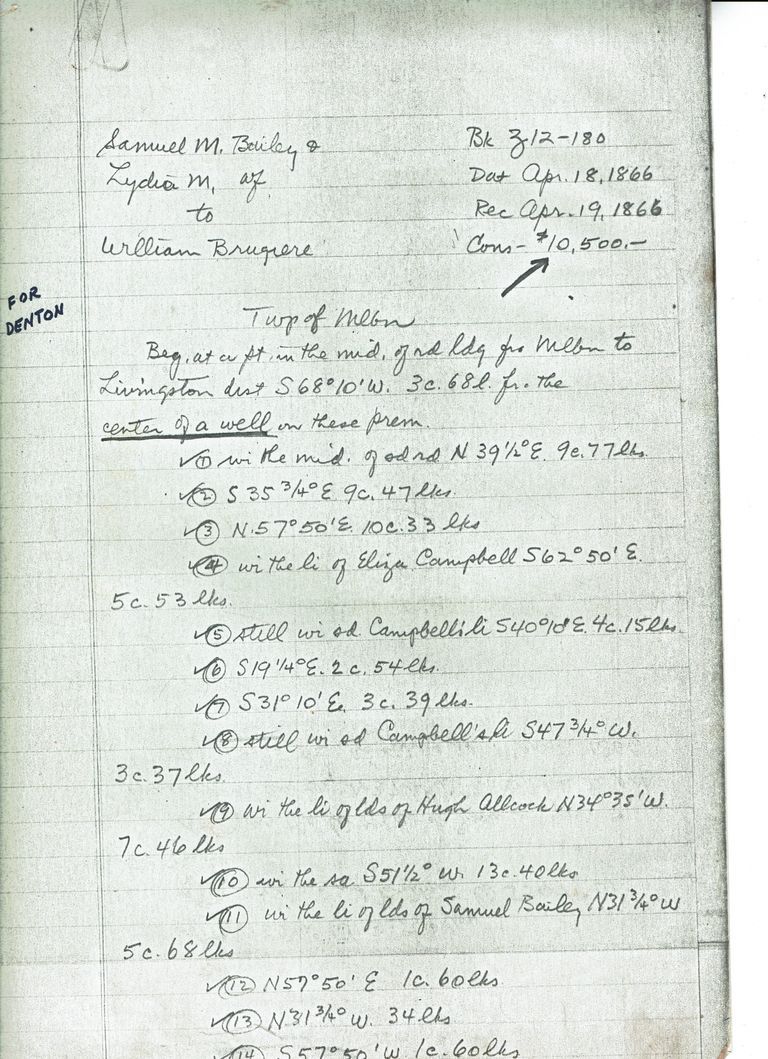 Samuel M. Bailey &
Lydia M, wf
to
William Brugiere
Bk Z-12-180
Dat Apr. 18, 1866
Rec Apr. 19, 1866
Cons- $10,500.-
FOR
DENTON
Twp of Mlbn
Beg. at a pt. in the mid. of rd ldg fro Mlbn to
Livingston dist S68°10'W. 3c. 68l. fr. the
center of a well on these prem.
① wi the mid. of sd rd N 39 1/2° E. 9c. 77 lks.
② S 35 3/4° E. 9c. 47 lks.
③ N. 57° 50' E. 10c. 33 lks
④ wi the li of Eliza Campbell S62° 50' E.
5c. 53 lks.
⑤ still wi sd Campbell's li S40° 10' E. 4c. 15 lks.
⑥ S19 1/4° E. 2c. 54 lks.
⑦ S31° 10' E. 3c. 39 lks.
⑧ still wi sd Campbell's li S47 3/4° W.
3c. 37 lks
⑨ wi the li of lds of Hugh Allcock N34° 35' W.
7c. 46 lks
⑩ wi the sa S51 1/2° W. 13c. 40 lks
⑪ wi the li of lds of Samuel Bailey N31 3/4° W
5c. 68 lks
⑫ N57° 50' E 1c. 60 lks
⑬ N31 3/4° W. 34 lks
⑭ S57° 50' W. 1c. 60 lks